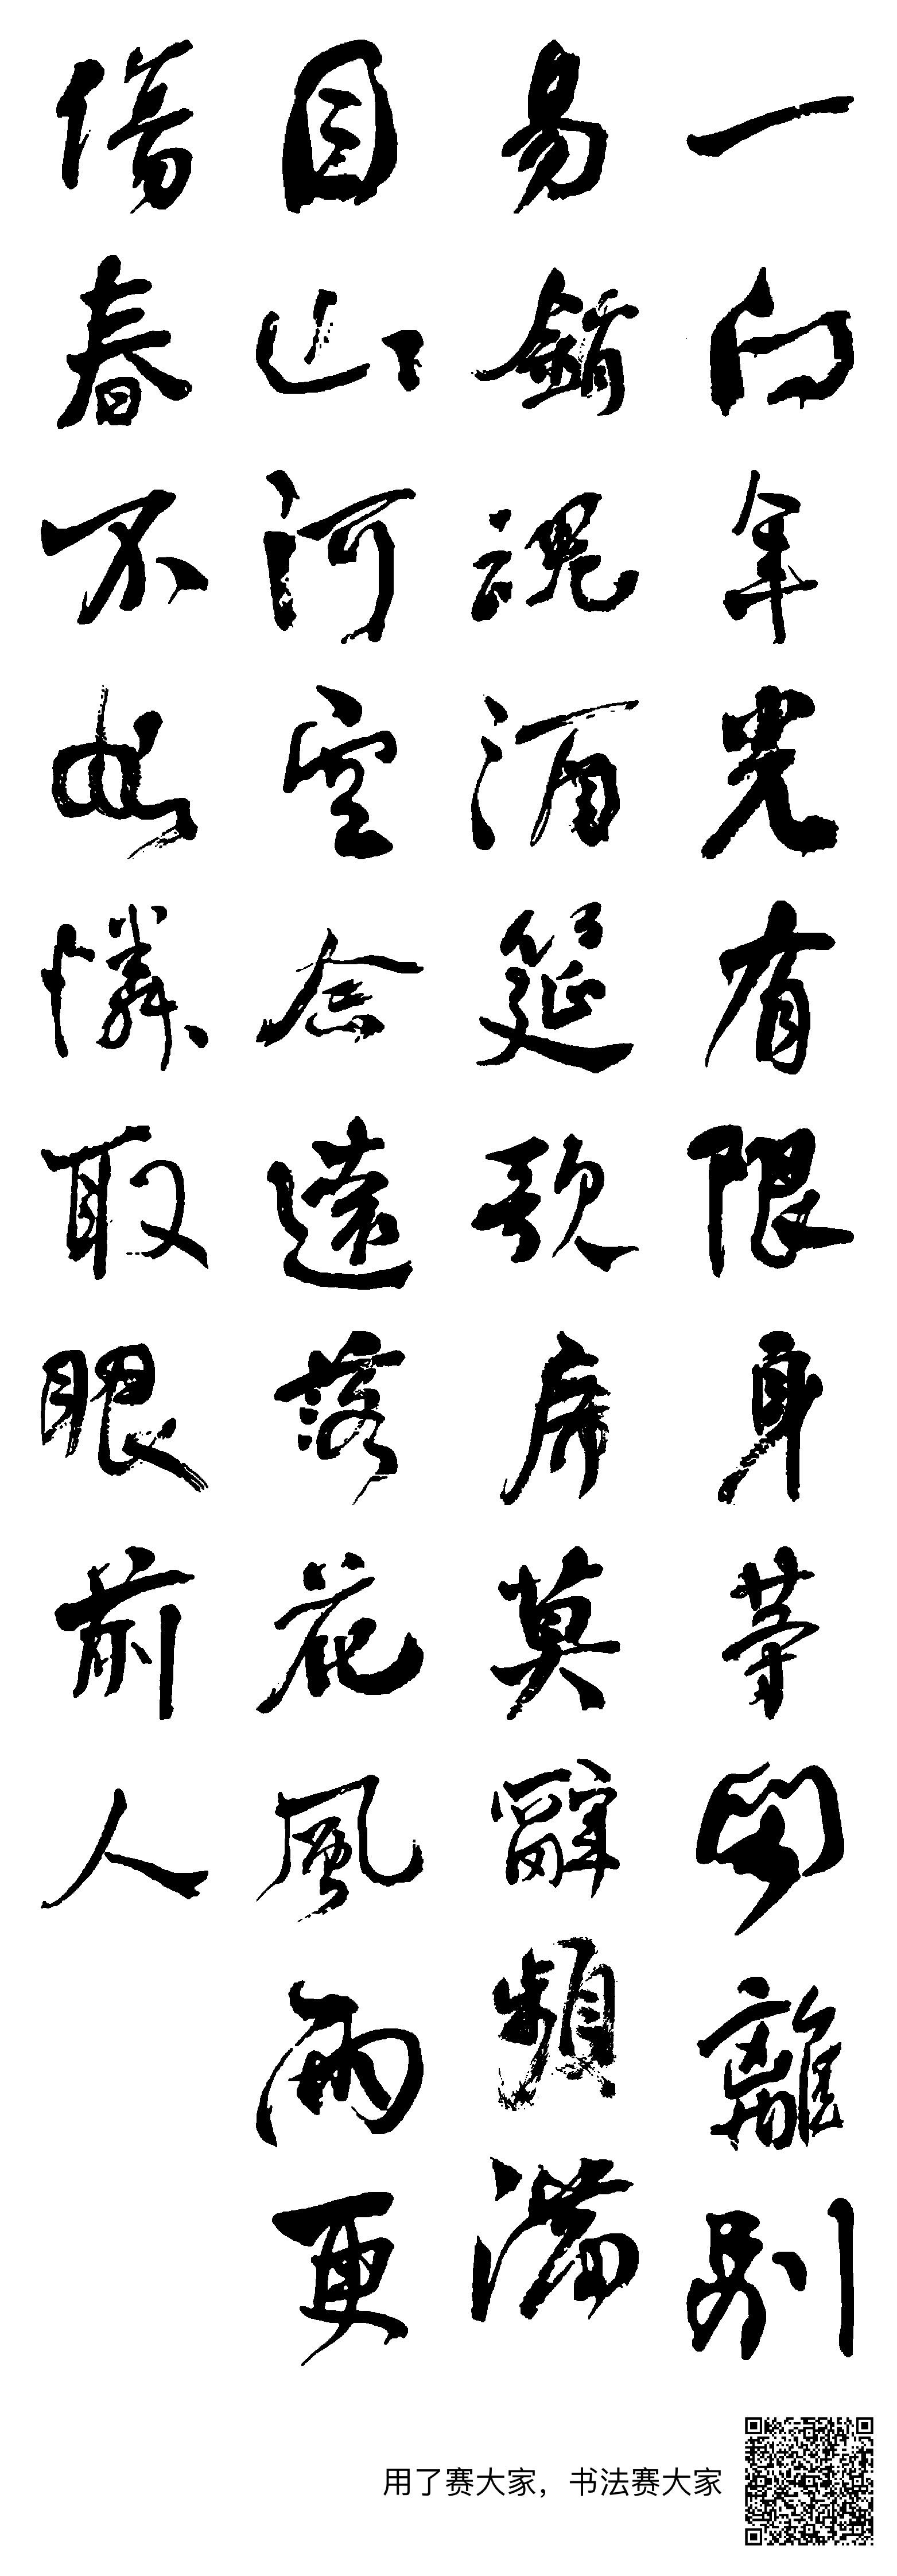 一向年光有限身等閒離別
易銷魂酒筵歌席莫辭頻滿
目山河空念遠落花風雨更
傷春不如憐取眼前人
用了赛大家，书法赛大家